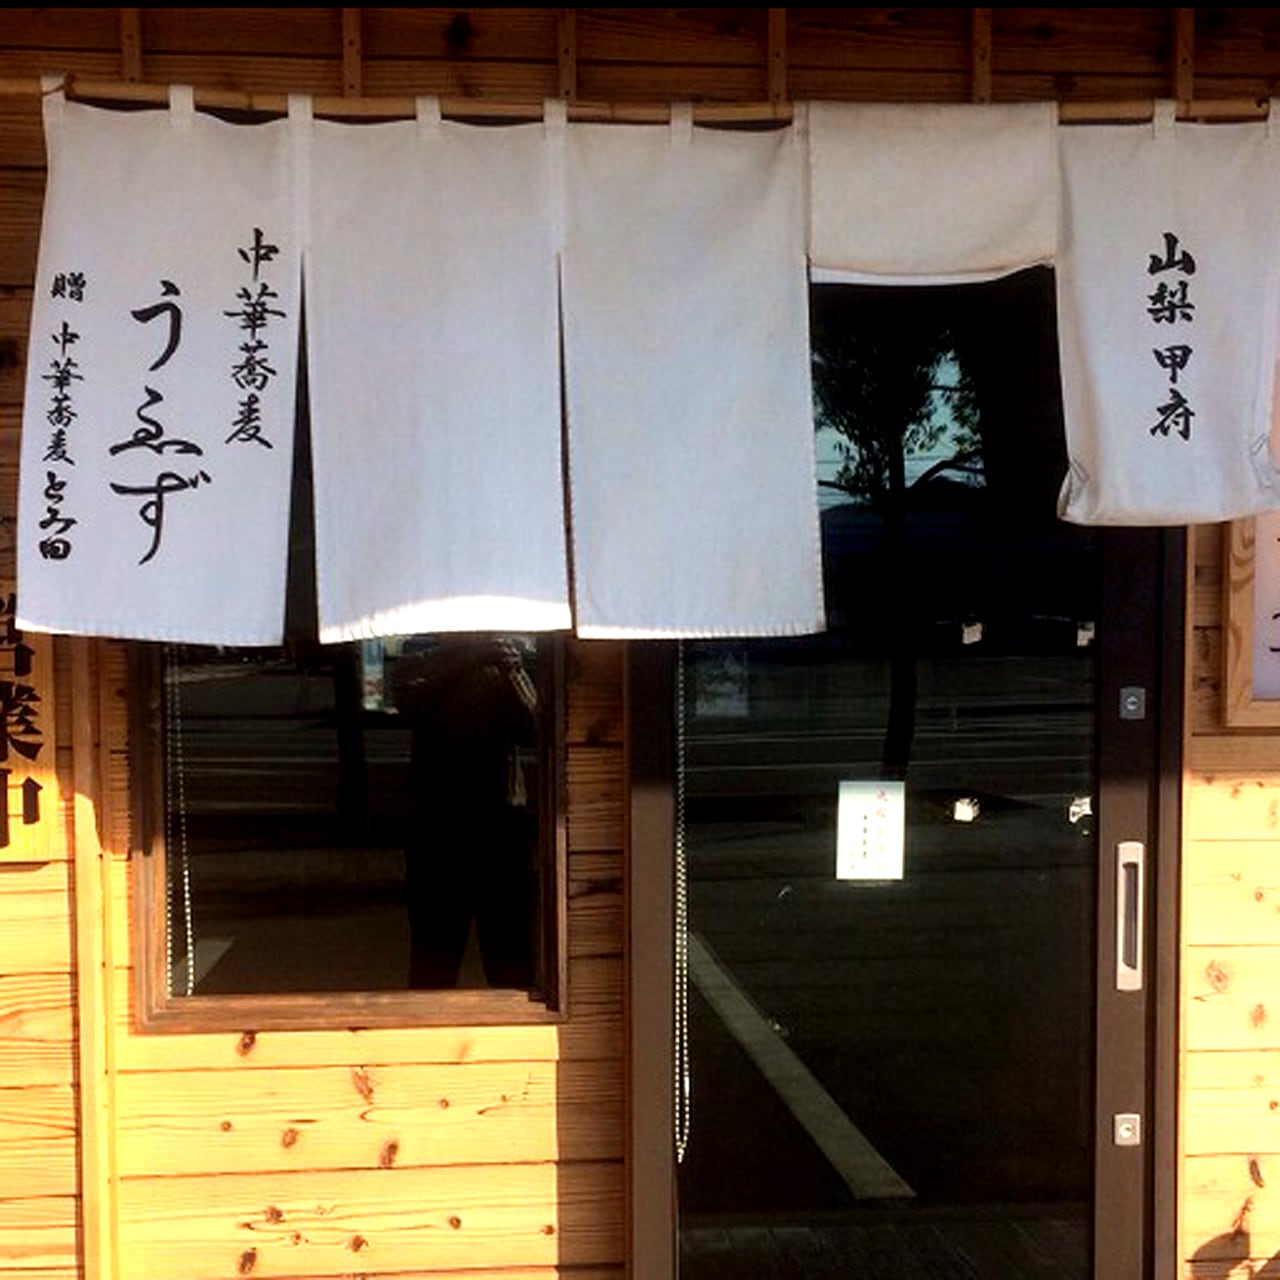 山梨 甲府
中華蕎麦
うゑず
贈 中華蕎麦 とみ田
営業中